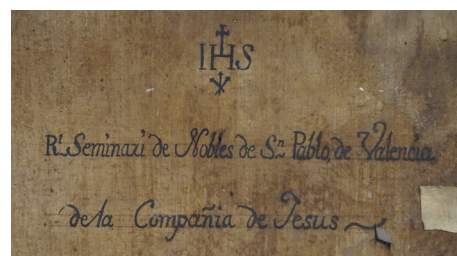 IHS
Rl. Seminari de Nobles de Sn. Pablo, de Valencia
de la Compañia de Jesus